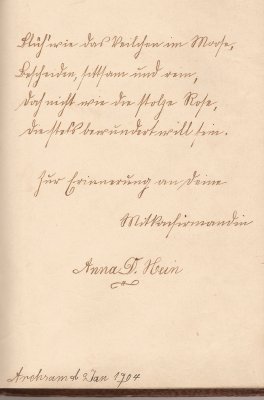 Blüh' wie das Veilchen im Moose,
Bescheiden, sittsam und rein,
Doch nicht wie die stolze Rose,
die stets bewundert will sein.
Zur Erinnerung an Deine
Mitkonfirmandin
Anna D. Hein
2 Jan 1904